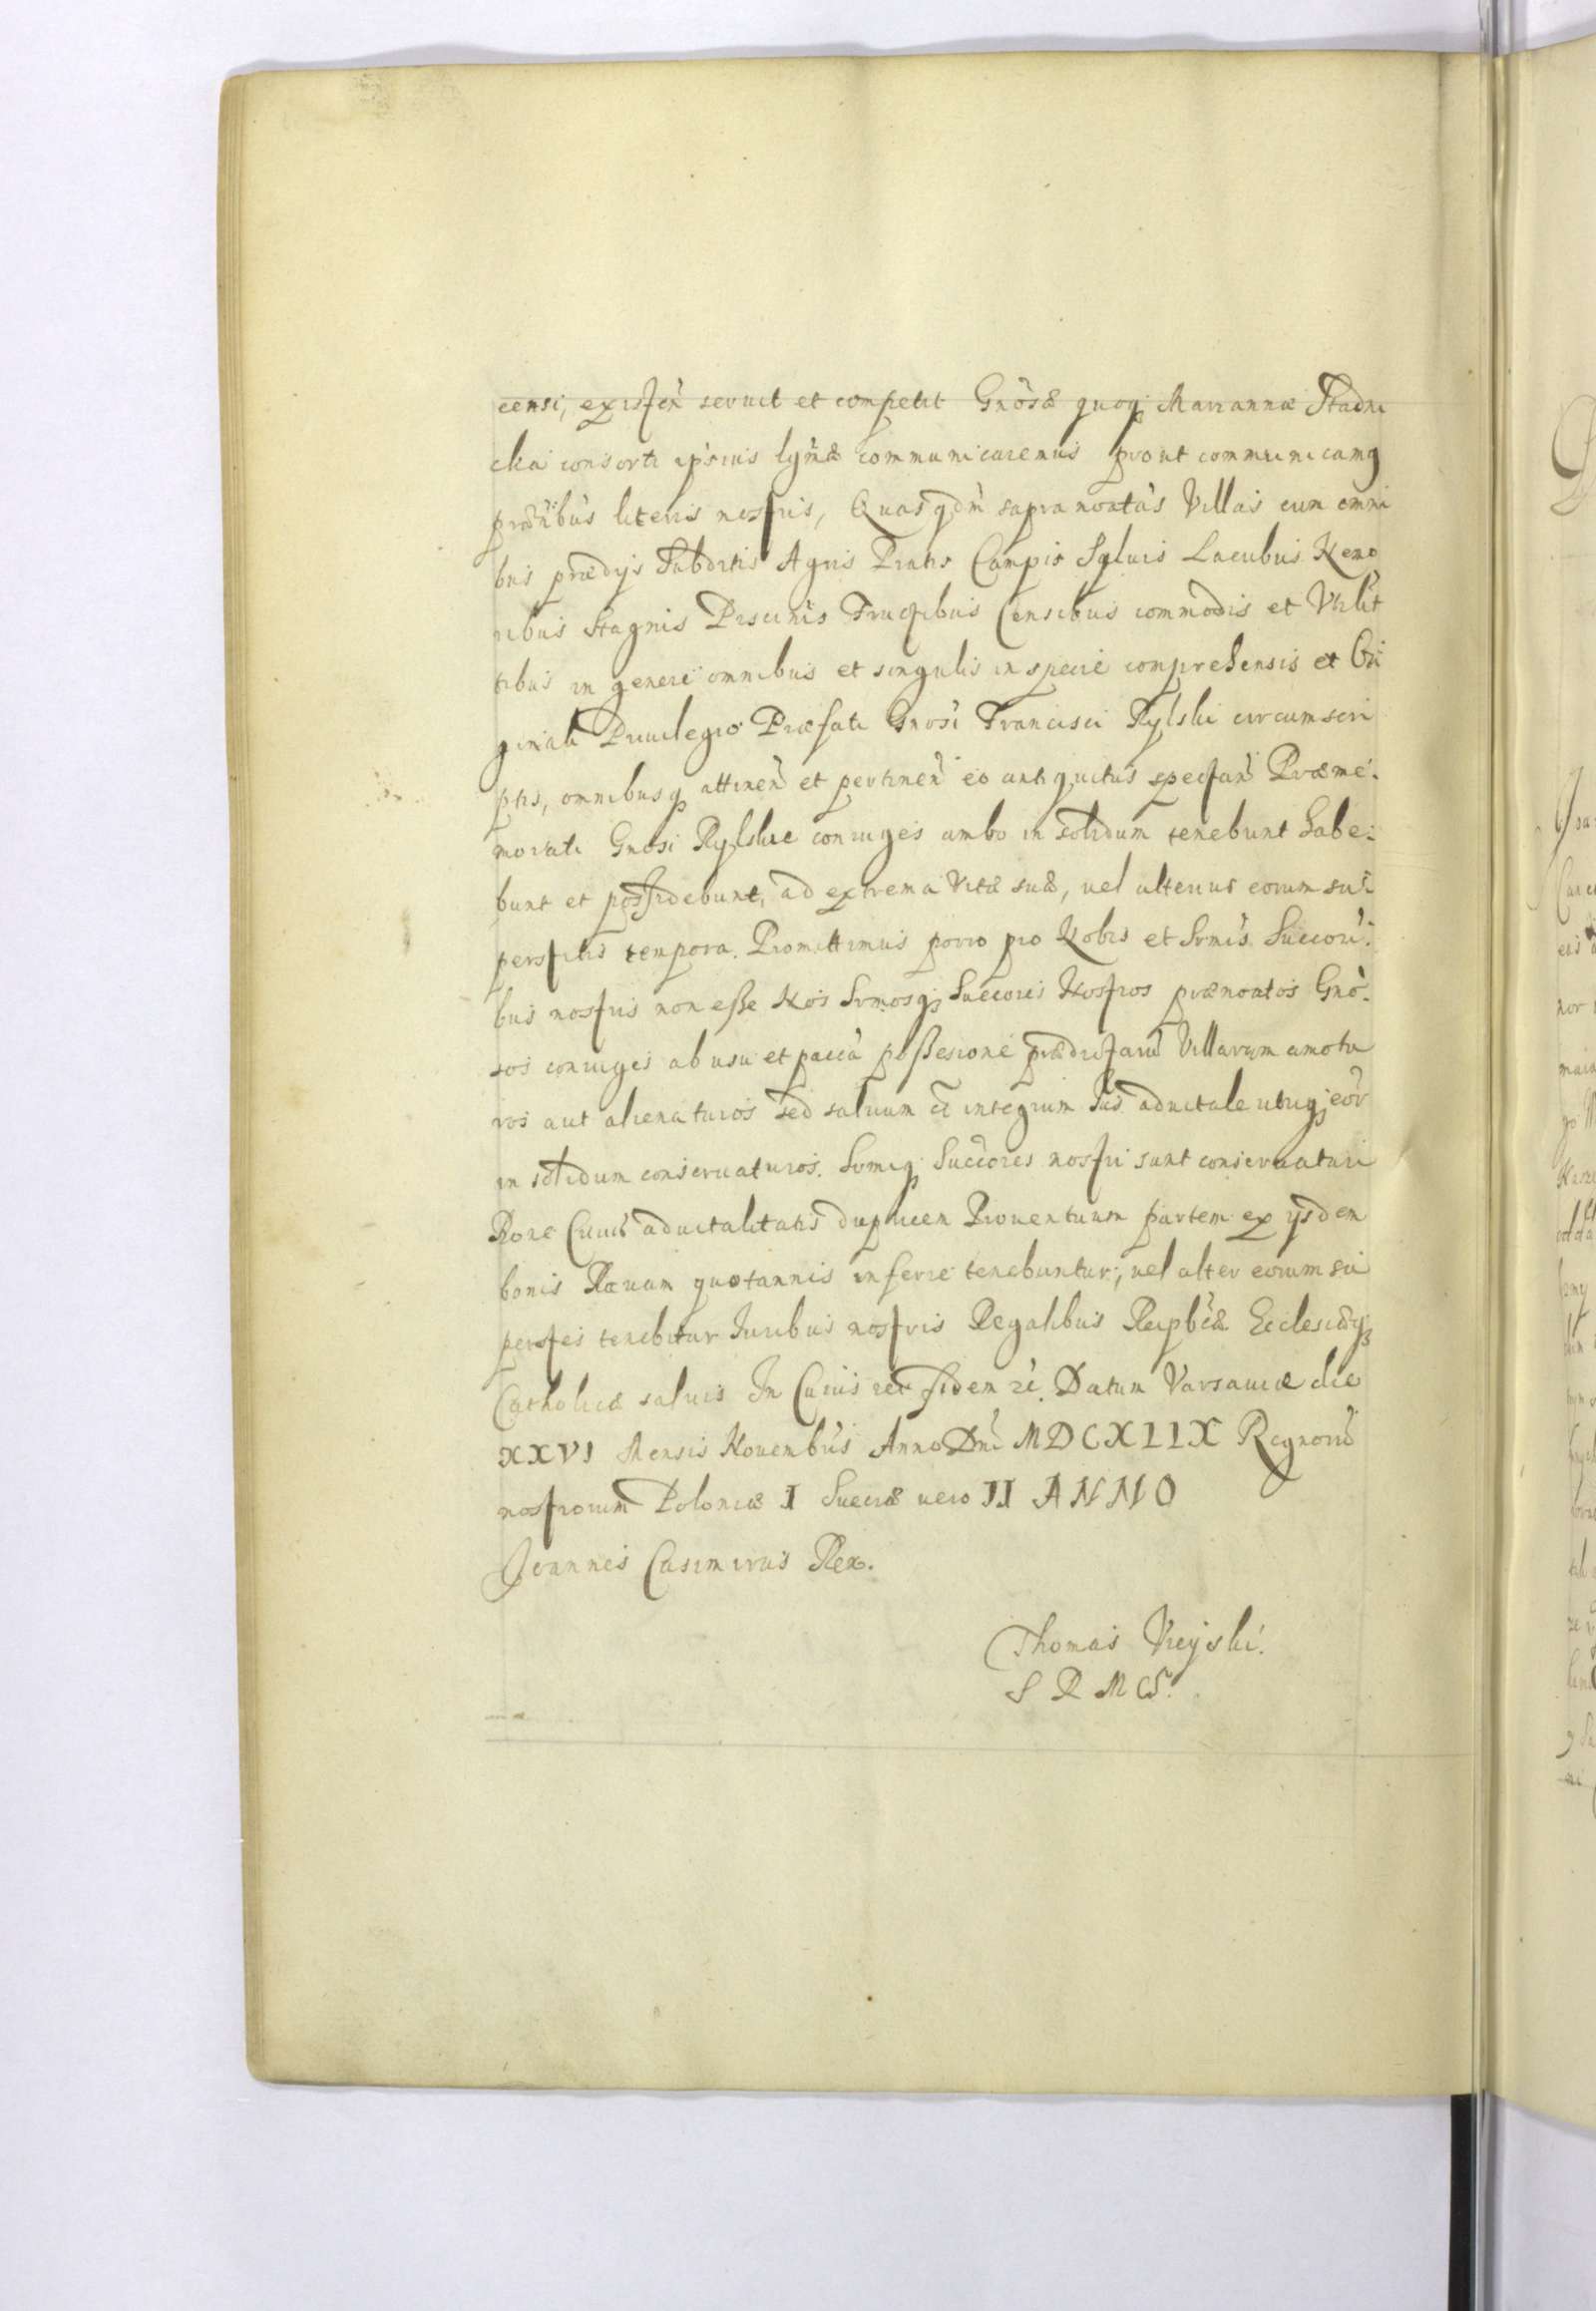 censi, existen̄ servit et competit Gnosæ quoq; Mariannæ Stadni
ckai consorti ipsius lgmæ communicaremus prout communicamq
prædnibus literis nostris, Quas qdm supranoatas Villas cum omni
bus prædijs Subditis Agris Pratis Campis Syluis Lacubus Nemo
ribus Stagnis Piscinis Fructibus Censibus commodis et Vtilit
tibus in genere omnibus et singulis in specie comprehensis et Ori
ginali Priuilegio Præfati Gnosi Francisci Rylski circumscri
ptis, omnibusq; attinen̄ et pertinen̄ eo antiquitus spectan̄ Præme:
morati Gnosi Rylskie coniuges ambo in solidum tenebunt habe:
bunt et possidebunt, ad extrema vitæ suæ, uel alterius eorum su:
perstitis tempora. Promittimus porro pro Nobis et Srmis Succori:
bus nostris non esse Nos Srmosq; Succores Nostros prænoatos Gno:
sos coniuges ab usu et pacca possesione prædictaru Villarum amotu
ros aut alienaturos sed saluum et integrum Jus aduitale utriq; eor
in solidum conseruaturos. Srmiq; Succores nostri sunt conseruaturi
Rone Cuius aduitalitatis duplicem Prouentuum partem ex ijsdem
bonis Rauam quotannis inferre tenebuntur, uel alter eorum su
perstes tenebitur Juribus nostris Regalibus Reipbcæ Ecclesiæq;
Catholicæ saluis In Cuius rei fidem &c. Datum Varsauiæ die
XXVI Mensis Nouembris Anno Dni MDCXLIIX Regnoru
nostrorum Poloniæ I Sueciæ uero II ANNO
Joannes Casimirus Rex.
Thomas Vieyski.
S R M S.